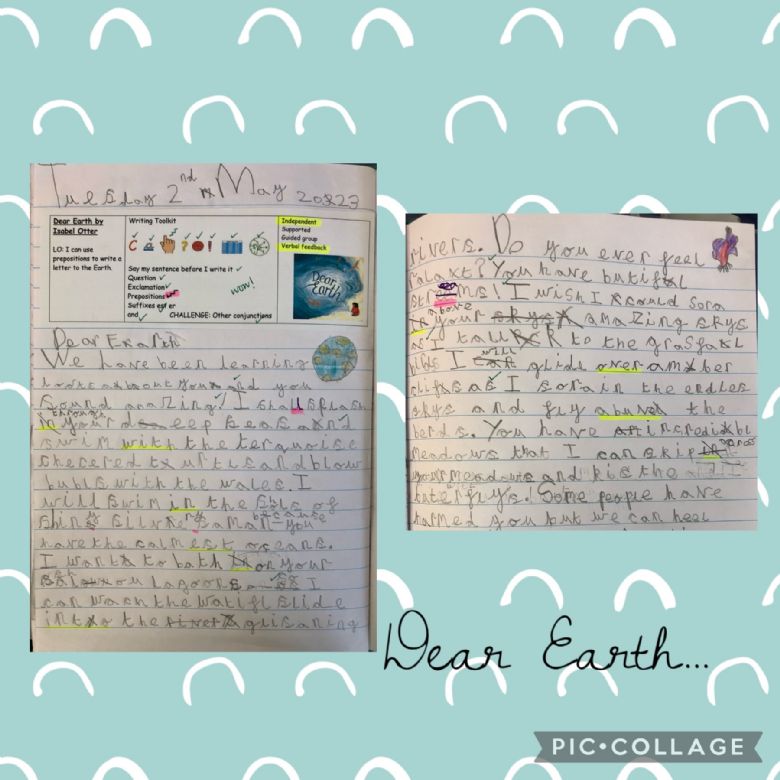 Tuesday 2nd May 2023
Dear Earth by
Isabel Otter
LO: I can use
prepositions to write a
letter to the Earth.
Writing Toolkit
Say my sentence before I write it
Question
Exclamation
Prepositions
Suffixes est er
and
CHALLENGE: Other conjunctions
wow!
Independent
Supported
Guided group
Verbal feedback
Dear Earth
Dear Earth
We have been learning
about you and you
sound amazing! I shall splash
through
in your deep seas and
swim with the terquoise
turtls and blow
bubls with the wales. I
will swim in the
shiny silvre because you
have the calmest oceans.
I want to bath on your
lagoons as I
can wach the watlfl slide
into the glisaning
rivers. Do you ever feel
ralaxt? You have butiful
strems! I wish I could sora
above
in your amazing skys
as I talk to the grasfall
bids I will glide over amber
clifs as I sora in the endles
skys and fly abuve the
berds. You have incredibl
meadows that I can skip across
your meadows and kis the
buterflys. Some people have
harmed you but we can heel
Dear Earth...
PIC•COLLAGE